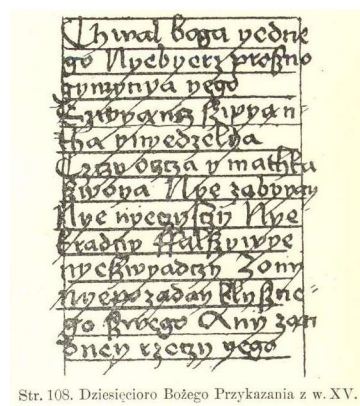 Chwal boga yedne
go Nyebyerz prosno
gymyenya yego
Szwyąncz szwyąn=
tha y nyedzelya
Czczy oszcza y mathka
szwoya Nye zabyyay
Nye nyeczysczy Nye
kradny ffalszywye
nyeszwyadczy Zony
nyepozaday blyszne=
go szwego Any ządn
dney rzeczy yego
Str. 108. Dziesięcioro Bożego Przykazania z w. XV.